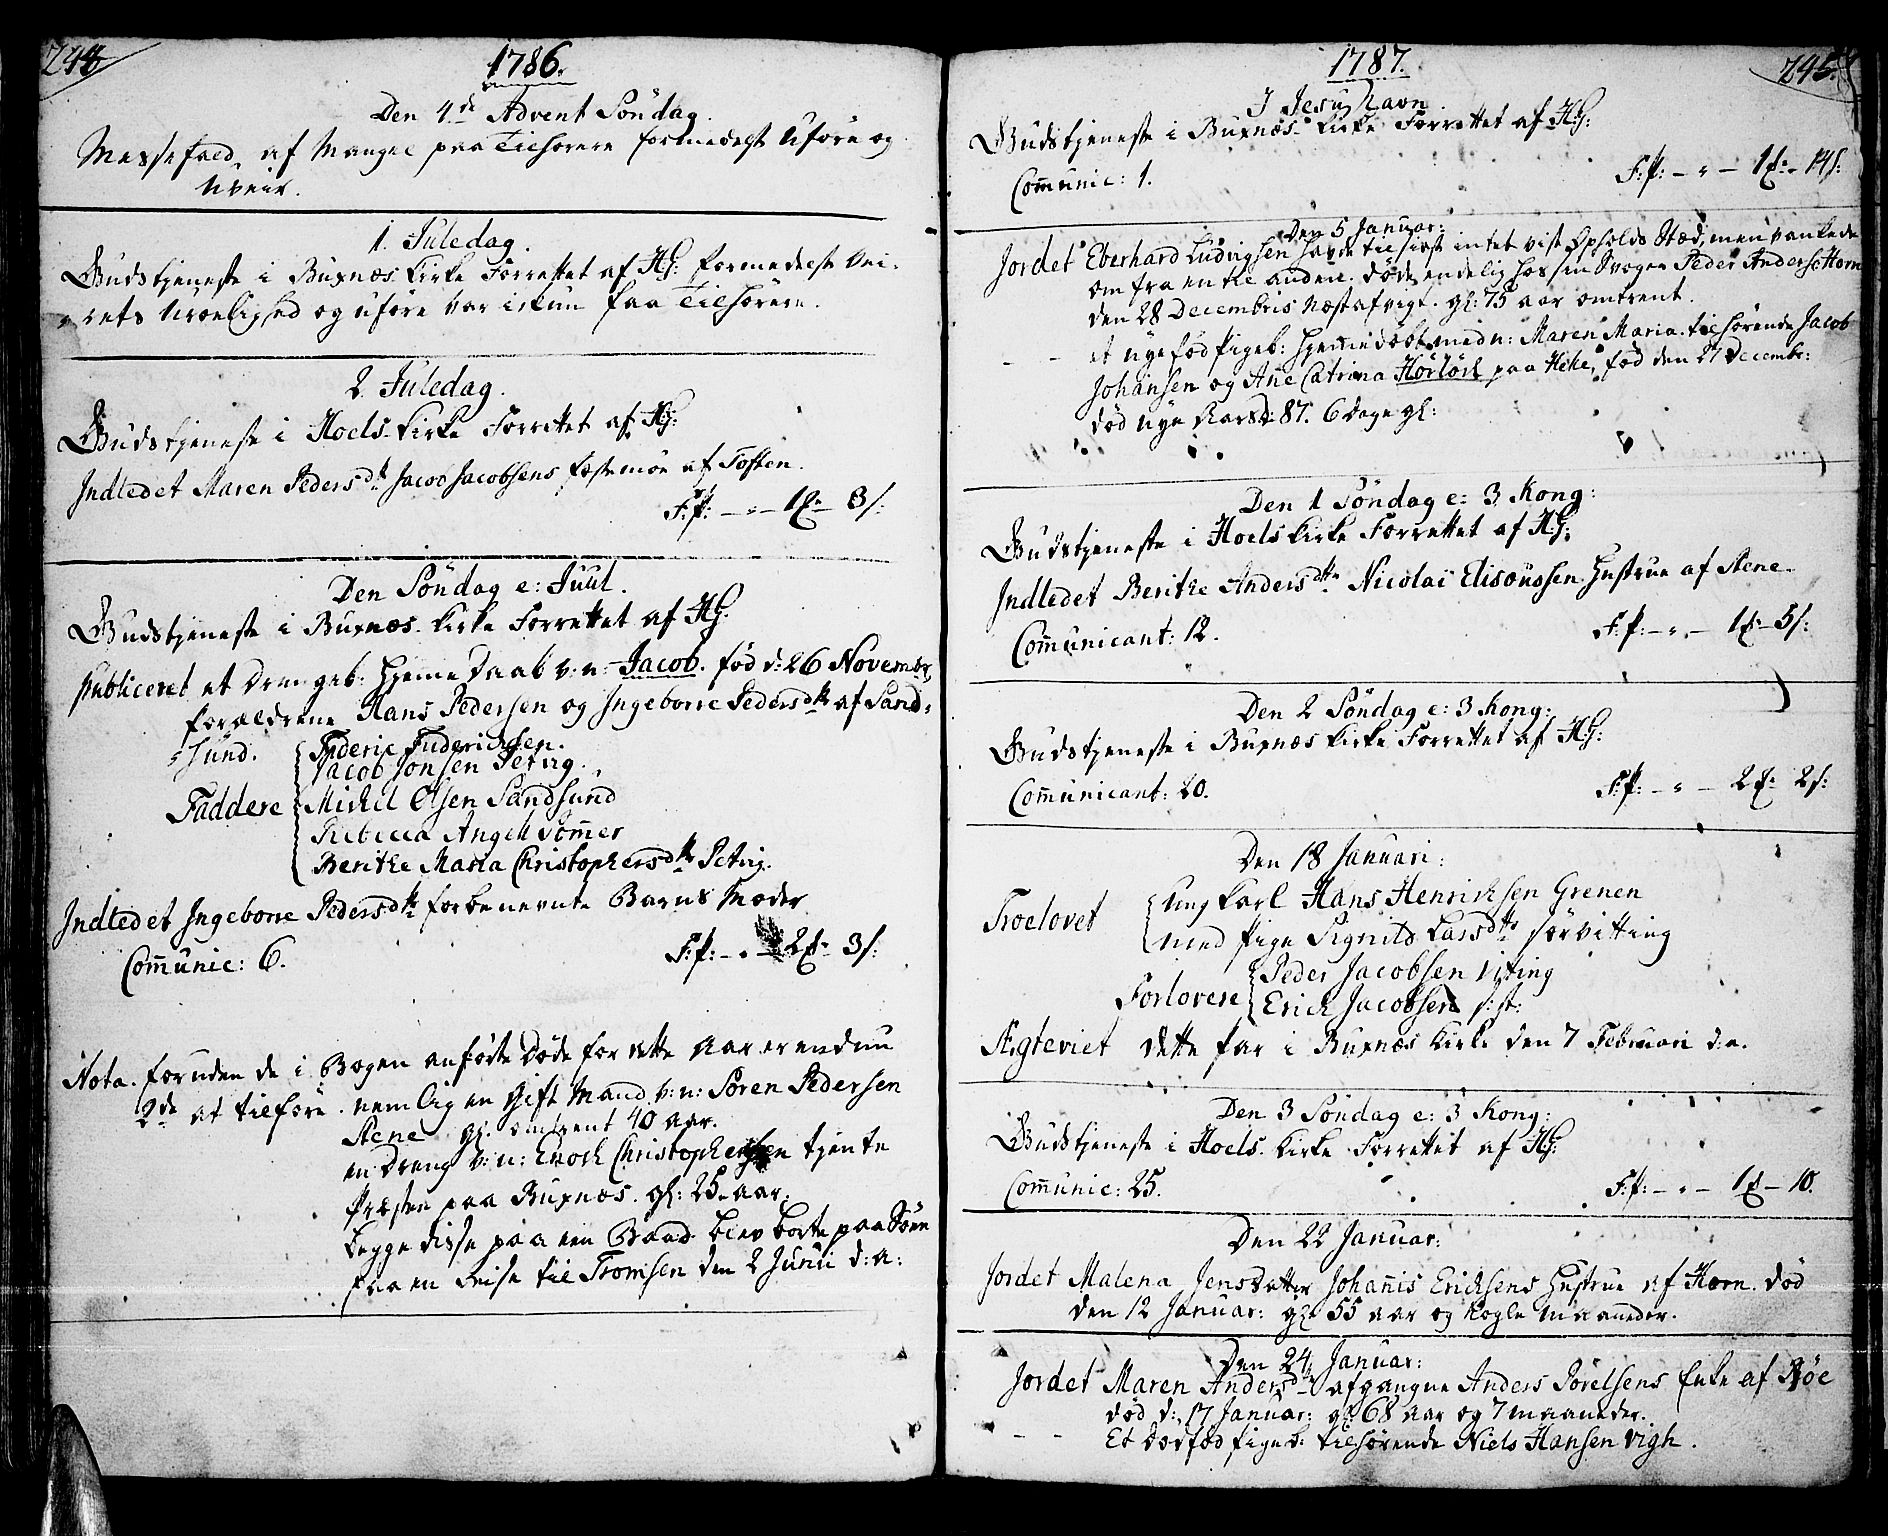 244
1786.
Den 4de Advent Söndag.
Messefald, af Mangel paa Tilhörere formedelst Uföre og
Uveir.
1. Juledag.
Gudstjeneste i Buxnæs Kirke Forrettet af HG: formedelst Vei-
rets Uroelighed og uföre var ikkun faa Tilhörere.
2. Juledag.
Gudstjeneste i Hoels Kirke Forrettet af HG:
Indledet Maren Pedersdtr Jacob Jacobsens festemöe af Toften.
F:P: – „ – 1 – 3 s:
Den Söndag e: Juul.
Gudstjeneste i Buxnæs Kirke Forrettet af HG:
Publiceret et Drengeb: Hjemme Daab v: n: Jacob. föd d: 26 Novembr
forældrene Hans Pedersen og Ingeborre Pedersdtr af Sand-
sund.
Faddere
Frideric Friderichsen.
Jacob Jonsen Petvig.
Michel Olsen Sandsund
Rebecca Angell Sommer
Berithe Maria Christophersdtr Petvig.
Indledet Ingeborre Pedersdtr forbenevnte Barns Moder
Communic: 6.
F:P: – „ – 2 – 3 s:
Nota. foruden de i Bogen anförte Döde for dette Aar er endnu
2de at tilföre. nemlig en Gift Mand v: n: Sören Pedersen
Stene gl: omtrent 40 aar.
en Dreng v: n: Enoch Christophersen tjente
Præsten paa Buxnæs. gl: 25 aar.
begge disse paa een Baad blev borte paa Söen
paa en Reise til Tromsen den 2 Junii d: a:
245.
1787.
I Jesu Navn.
Gudstjeneste i Buxnæs Kirke Forrettet af HG:
Communic: 1.
F:P: – „ – 1 – 14 s:
Den 5 Januar:
Jordet Eberhard Ludvigsen havde til sidst intet vist Opholds Stæd, men vankede
om fra en til anden. döde endelig hos sin Svoger Peder Anderse Horn
den 28 Decembris Næstafvigt. gl: 75 aar omtrent.
– – et nyefödt Pigeb: hjemmedöbt med n: Maren Maria. tilhörende Jacob
Johansen og Ane Catrina paa Helle, föd den 27 Decembr:
död nye Aarsd: 87. 6 Dage gl:
Den 1 Söndag e: 3 Kong:
Gudstjeneste i Hoels Kirke Forrettet af HG:
Indledet Berithe Andersdtr Nicolai Elisæussen Hustrue af Stene.
Communicant: 12.
F:P: – „ – 1 – 5 s:
Den 2 Söndag e: 3 Kong:
Gudstjeneste i Buxnæs Kirke Forrettet af HG:
Communicant: 20.
F:P: – „ – 2 – 2 s:
Den 18 Januari:
Troelovet
ung Karl Hans Henrichsen Grenen
med Pige Sigrild Larsdtr
Forlovere
Peder Jacobsen Viting
Erich Jacobsen s: st:
Ægteviet dette par i Buxnæs Kirke den 7 Februari d: a.
Den 3 Söndag e: 3 Kong:
Gudstjeneste i Hoels Kirke Forrettet af HG:
Communic: 25.
F:P: – „ – 1 – 10.
Den 22 Januar:
Jordet Malena Jensdatter Johannis Erichsens Hustrue af Horn. död
den 12 Januar: gl: 55 aar og nogle maaneder.
Den 24 Januar:
Jordet Maren Andersdtr afgangne Anders Jörelsens Enke af Röe
död d: 17 Januar: gl: 68 aar og 7 maaneder.
– – Et dödföd Pigeb. tilhörende Niels Hansen Vigh.